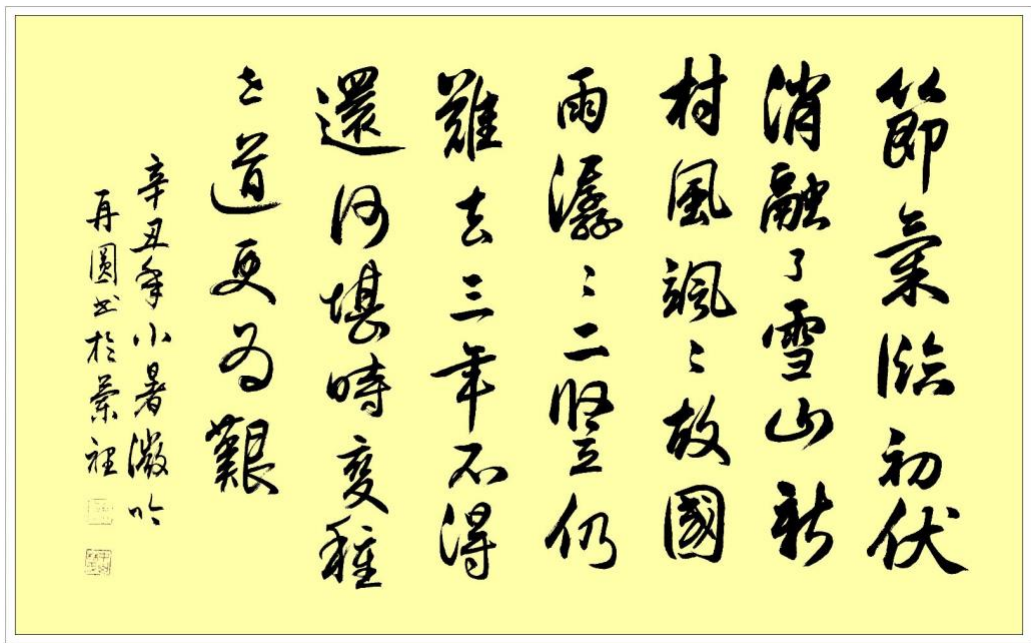 節氣臨初伏
消融了雪山新
村風颯〻故國
雨潺〻二豎仍
難去三年不得
還何堪時變種
世道更為艱
辛丑年小暑微吟
再圓书於裡